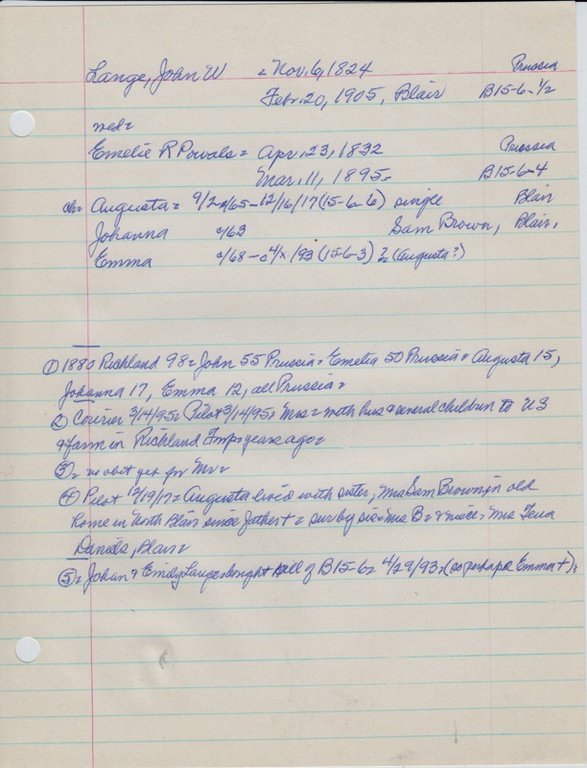 Lange, John W = Nov. 6, 1824 Prussia
Febr. 20, 1905, Blair B15-6-1/2
md=
Emelie R Powals = Apr. 23, 1832 Prussia
Mar. 11, 1895. B15-6-4
ch= Augusta = 9/2 1865-12/16/17 (15-6-6) single Blair
Johanna c/63 Sam Brown, Blair,
Emma c/68 - c4/x/93 (15-6-3) ?= (Augusta?)
① 1880 Richland 98 = John 55 Prussia = Emelia 50 Prussia = Augusta 15,
Johanna 17, Emma 12, all Prussia =
② Courier 3/14/95 = Pilot 3/14/95 = Mrs = with hus & several children to US
& farm in Richland Twp years ago =
③ = no obit yet for Mr =
④ Pilot 12/19/17 = Augusta lived with sister, Mrs Sam Brown, in old
home in North Blair since father + = sur by sis = Mrs B = & niece = Mrs
Daniels, Blair =
⑤ = Johan & Emily Lange bought all of B15-6 = 4/29/93 = (so perhaps Emma +) =